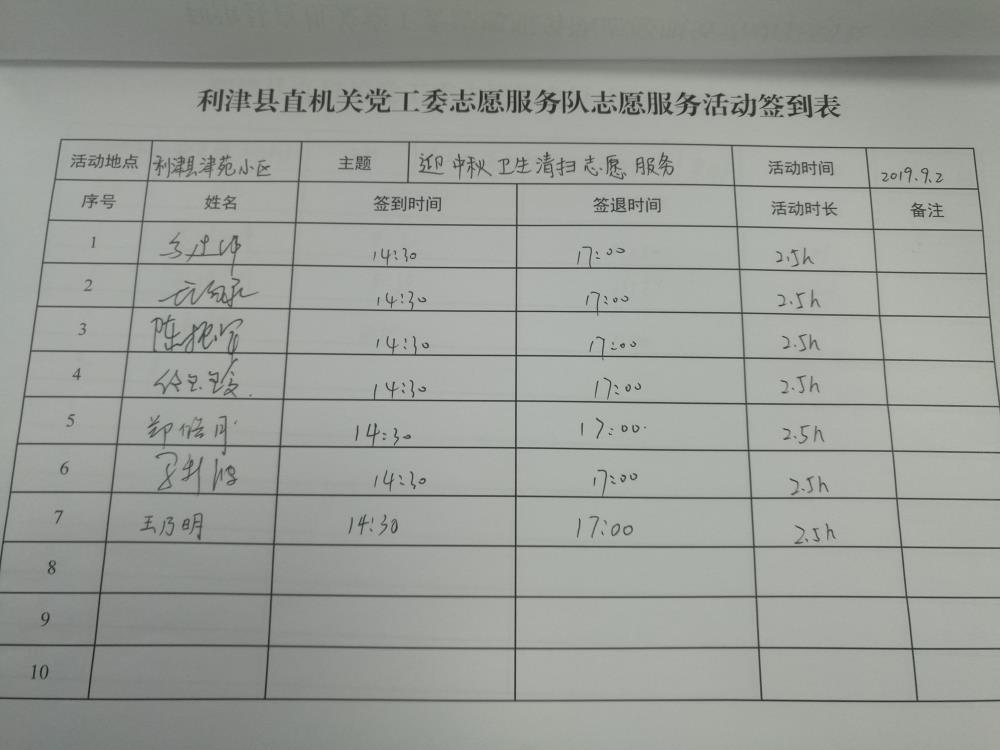 利津县直机关党工委志愿服务队志愿服务活动签到表
活动地点 利津县津苑小区 主题 迎中秋卫生清扫志愿服务 活动时间 2019.9.2
序号 姓名 签到时间 签退时间 活动时长 备注
1 14:30 17:00 2.5h
2 14:30 17:00 2.5h
3 陈振军 14:30 17:00 2.5h
4 14:30 17:00 2.5h
5 郑修月 14:30 17:00 2.5h
6 14:30 17:00 2.5h
7 王乃明 14:30 17:00 2.5h
8
9
10